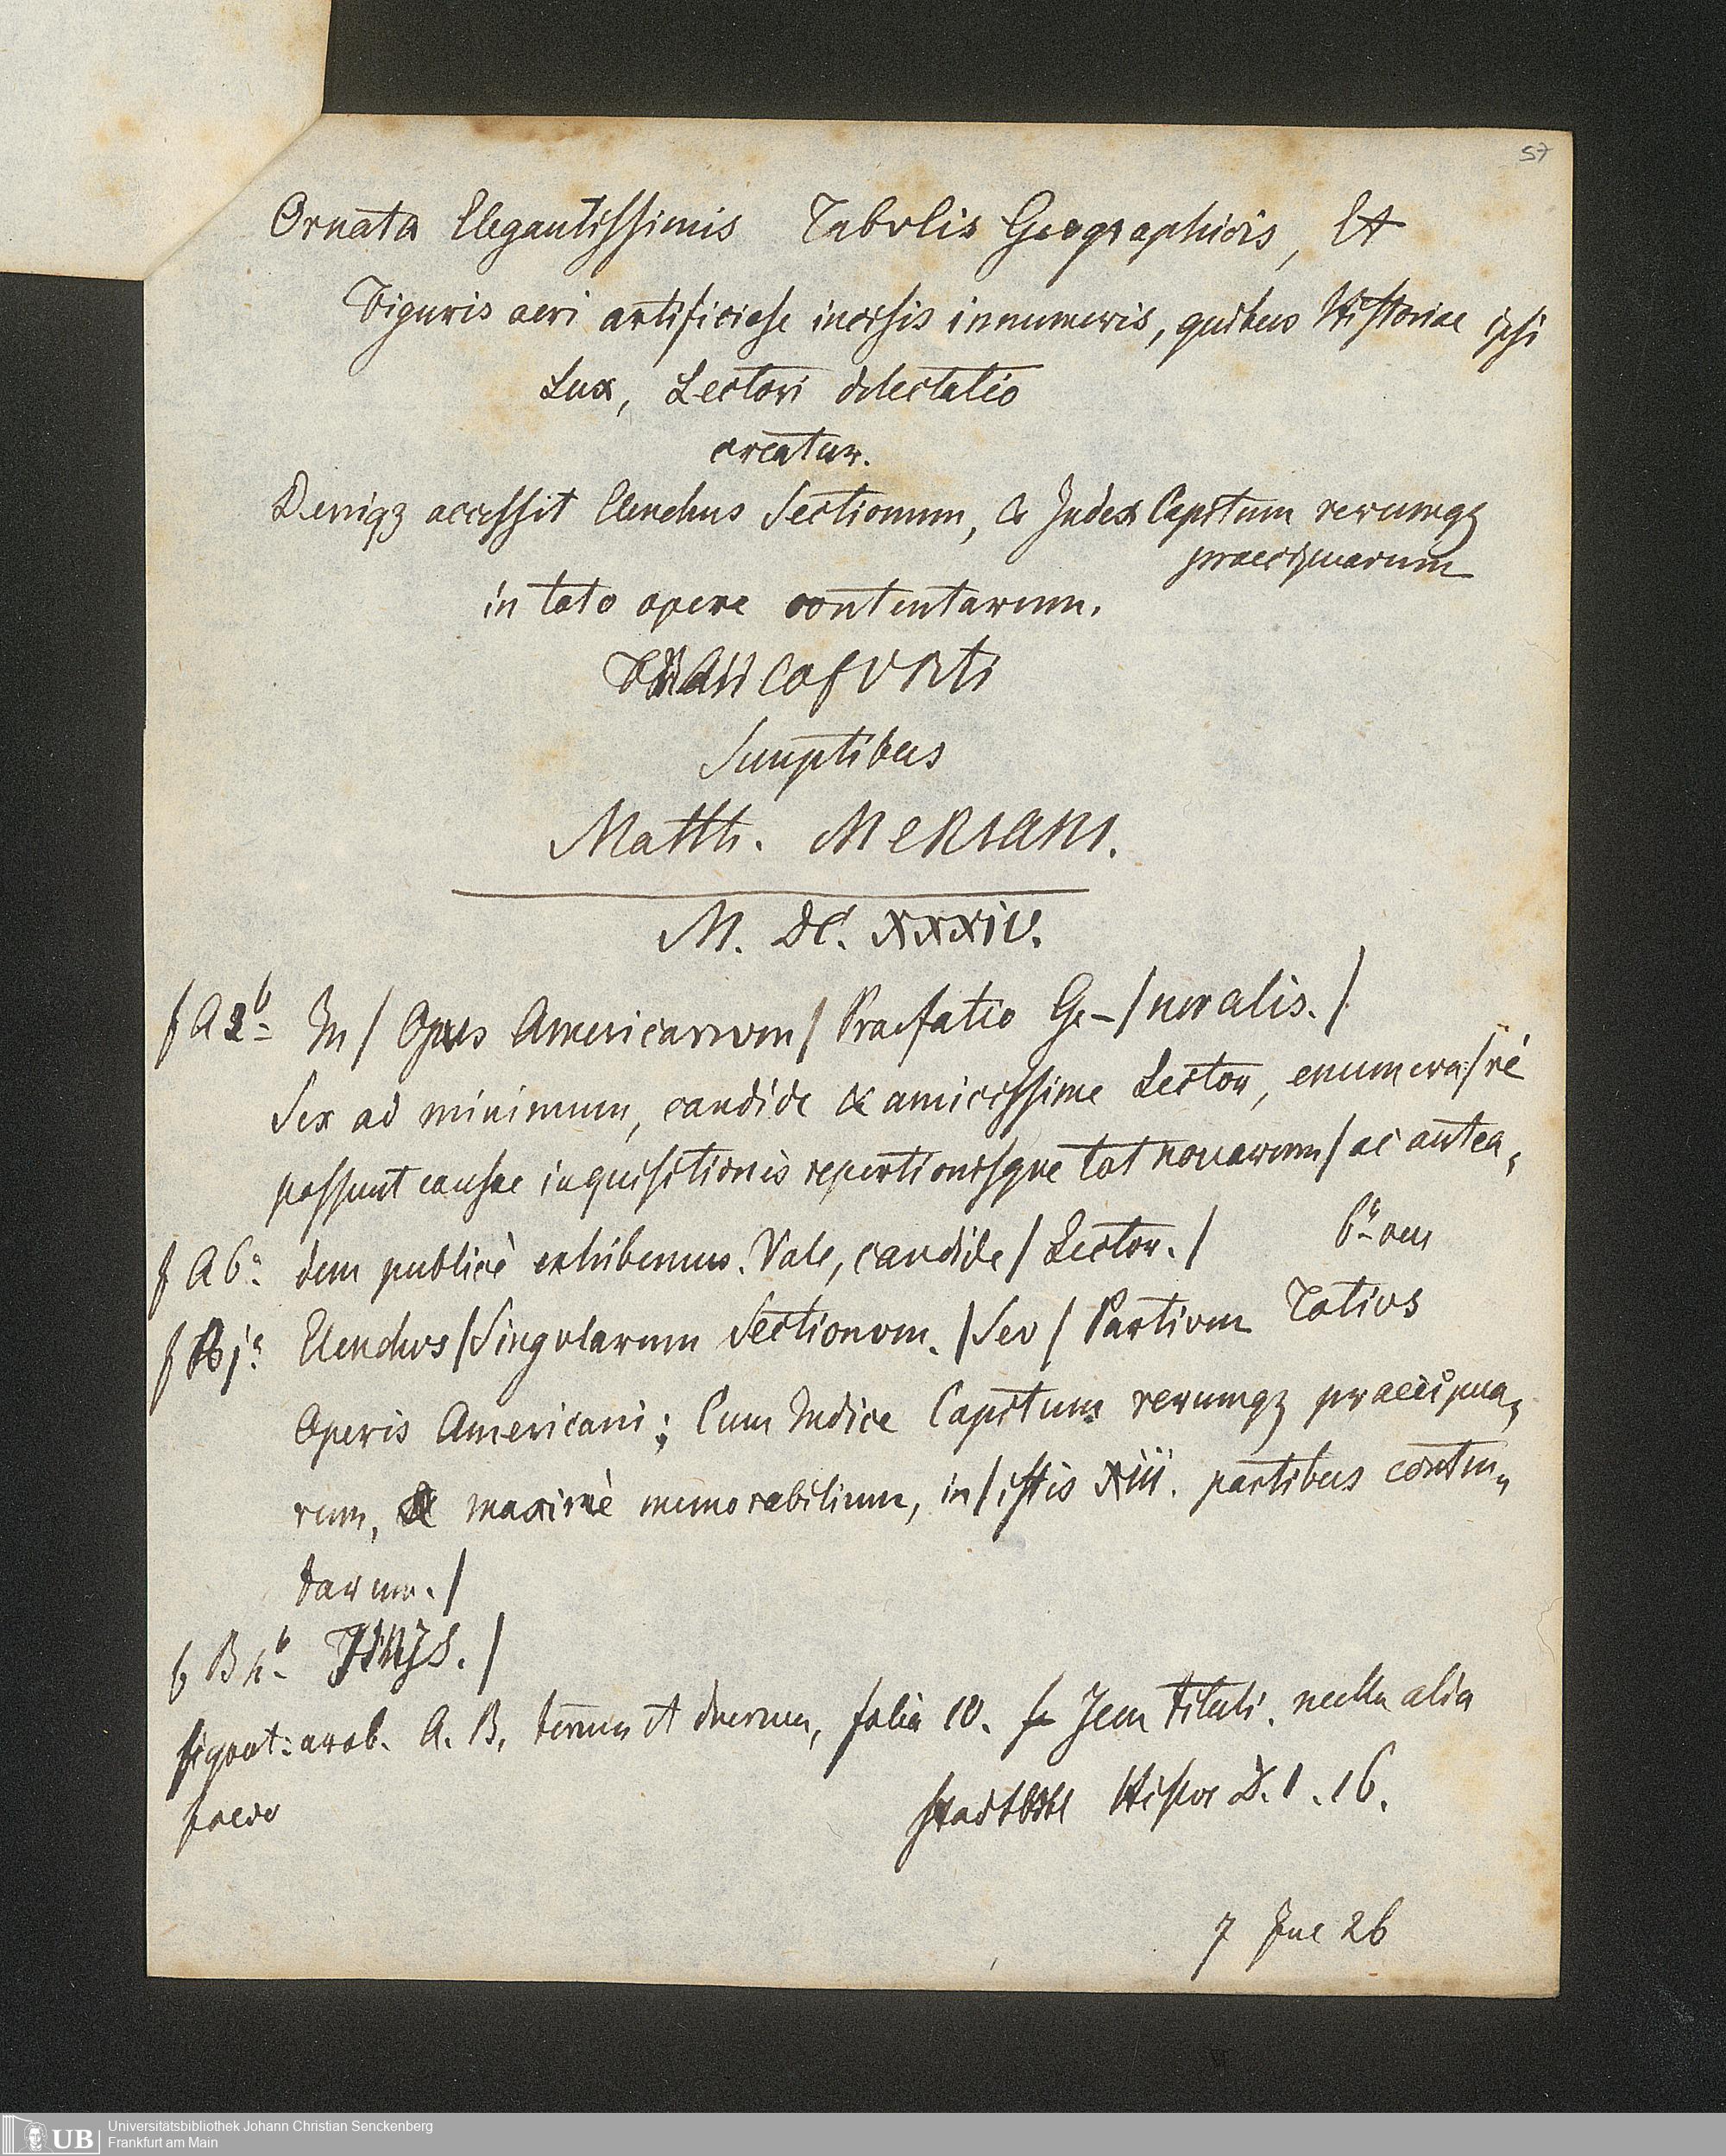 57
Ornata Elegantissimis Tabvlis Geographicis, Et
Figuris aeri artificiose incisis innumeris, quibus Historiae ipsi
Lux, Lectori delectatio
creatur.
Deniqꝫ accessit Elenchus Sectionum, & Index Capitum rerumqꝫ
praecipuarum
in toto opere contentarum.
FRAncofvRti
Sumptibus
Matth. MeRiani.
M. DC. XXXIV.
f A2b In / Opus Americanvm / Praefatio Ge- / neralis. /
Sex ad minimum, candide & amicissime Lector, enumera / ri
possunt causae inquisitionis repertionisque tot nouarum / ac antea,
f A6a dem publicè exhibemus. Vale, candide / Lector. /
f Bja Elenchvs / Singvlarum Sectionvm. / Sev / Partivm Totivs
Operis Americani; Cum Indice Capitum rerumqꝫ praecipua,
rum, & maximè memorabilium, in / istis XIII. partibus conten,
tarum. /
f B4b FINIS. /
signat: arab. A. B. folia 10. Item tituli. nulla alia
Stadtbibl Histor D. 1. 16.
7 26
Universitätsbibliothek Johann Christian Senckenberg
Frankfurt am Main
UB